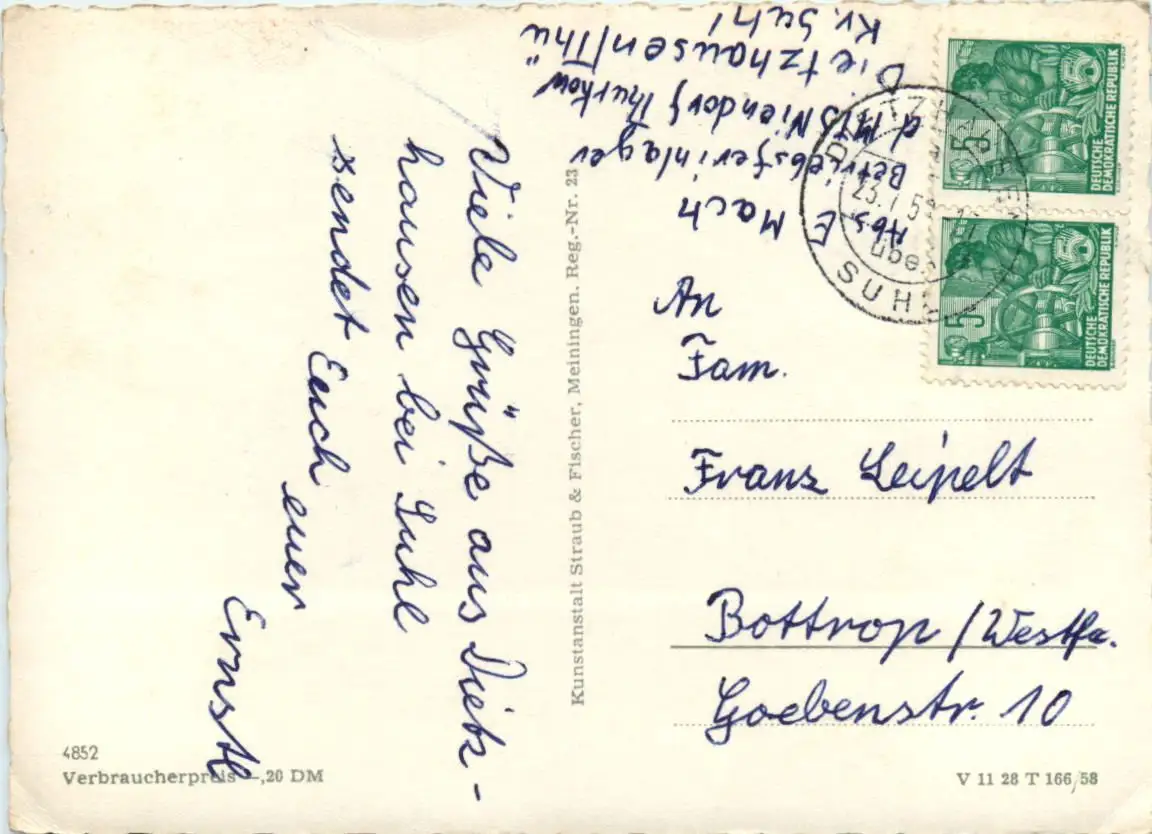 Viele Grüße aus Dietz-
hausen bei Suhl
sendet Euch
euer
Ernstl
Abs E Mach
Betriebsferienlager
d MTS Niendorf Thurkow
Dietzhausen/Thü
Kr. Suhl
An
Fam.
Franz Leipelt
Bottrop/Westfa.
Goebenstr. 10
Kunstanstalt Straub & Fischer, Meiningen. Reg.-Nr. 23
4852
Verbraucherpreis —,20 DM
V 11 28 T 166/58
5
DEUTSCHE
DEMOKRATISCHE REPUBLIK
5
DEUTSCHE
DEMOKRATISCHE REPUBLIK
SUHL
23.7.59